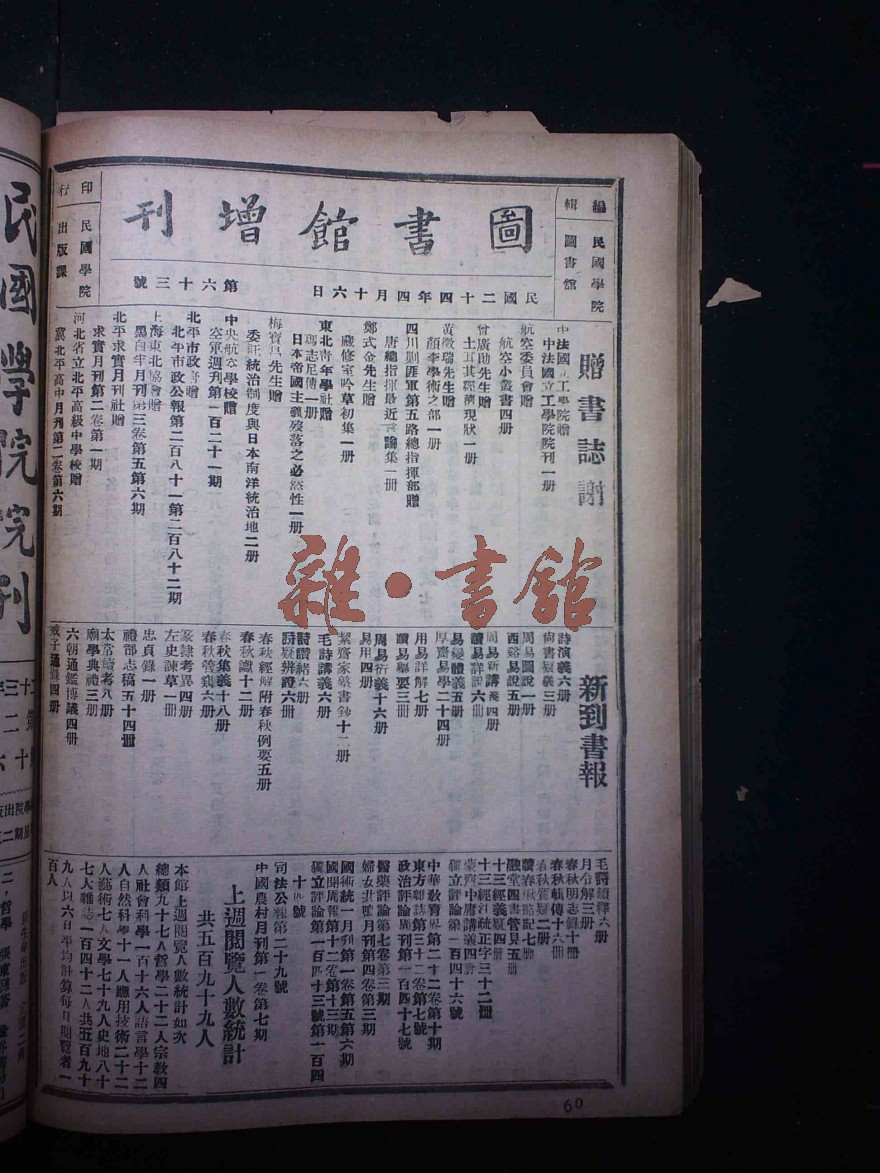 圖書館增刊
編輯 民國學院圖書館
印行 民國學院出版課
民國二十四年四月十六日 第六十三號
贈書誌謝
中法國立工學院贈
中法國立工學院院刊一册
航空委員會贈
航空小叢書四册
曾廣助先生贈
黃徵瑞先生贈
顏李學術之部一册
四川剿匪軍第五路總指揮部贈
唐總指揮最近言論集一冊
鄭式金先生贈
藏修室吟草初集一册
東北靑年學社贈
鄧志足傳一册
日本帝國主義歿落之必然性一册
梅寶昌先生贈
委託統治制度與日本南洋統治地二册
中央航空學校贈
空軍週刋第一百二十一期
北平市政府贈
北平市政公報第二百八十一第二百八十二期
上海東北協會贈
黑白半月刋第三卷第五第六期
北平求實月刋社贈
求實月刋第二卷第一期
河北省立北平高級中學校贈
冀北平高中月刋第二卷第六期
新到書報
詩演義六册
尙書疑義三册
周易圖說一册
西谿易說五册
周易新講義四册
讀易詳說六冊
易變體義五册
厚齋易學二十四册
用易詳解七册
讀易舉要三冊
周易衍義十六册
易用四册
絜齊家塾書鈔十二册
毛詩講義六册
詩讚緒六册
詩疑辨證六冊
春秋經解附春秋例要五册
春秋讞十二册
春秋集義十八册
春秋管窺六册
篆隸考異四册
左史諫草一册
忠貞錄一册
禮部志稿五十四冊
太常續考八册
廟學典禮三册
六朝通鑑博議四册
戒子通錄四册
毛詩類釋六册
月令解三册
春秋明志錄十册
春秋輯傳十六冊
春秋質疑二册
讀春秋略記七册
融堂四書管見五册
十三經義疑四册
十三經注疏正字三十二冊
蒙齊中庸講義四册
獨立評論第一百四十六號
中華敎育界第二十二卷第十期
東方雜誌第三十二卷第七號
政治評論周刋第一百四十七號
醫藥評論第七卷第三期
婦女共鳴月刋第四卷第三期
國術統一月刋第一卷第五第六期
國聞周報第十二卷第十三期
獨立評論第一百四十三號第一百四
十四號
司法公報第二十九號
中國農村月刋第一卷第七期
上週閱覽人數統計
共五百九十九人
本館上週閱覽人數統計如次
總類九十七人哲學二十二人宗敎四
人社會科學一百十六人語言學十二
人自然科學十一人應用技術二十二
人藝術七人文學七十九人史地八十
七人雜誌一百四十二人共五百九十
九人以六日平均計算每日閱覽者一
百人
60
民國學院院刊
雜·書館